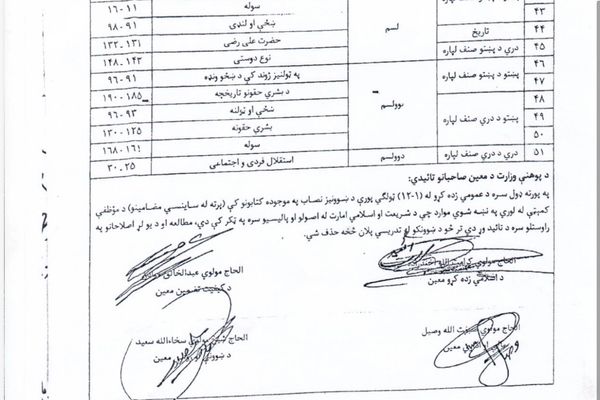 سوله ۱۱-۱۶
۴۳ لسم ښځې او لنډۍ ۹۱-۹۸
۴۴ تاریخ حضرت علی رضی ۱۳۱-۱۳۲
۴۵ دري د پښتو صنف لپاره نوع دوستی ۱۴۲-۱۴۸
۴۶ پښتو د دري صنف لپاره نوولسم په ټولنیز ژوند کې د ښځو ونډه ۹۱-۹۶
۴۷ د بشري حقونو تاریخچه ۱۸۵-۱۹۰
۴۸ پښتو د دري صنف لپاره ښځې او ټولنه ۹۳-۹۶
۴۹ بشري حقونه ۱۲۵-۱۳۰
۵۰ سوله
۵۱ دري د دري صنف لپاره دوولسم استقلال فردی و اجتماعی ۲۵-۳۰
د پوهنې وزارت د معین صاحبانو تائیدي:
په پورته ډول سره د عمومي زده کړو له (۱-۱۲) ټولګي پورې د ښوونیز نصاب په موجوده کتابونو کې (پرته له ساینسي مضامینو) د مؤظفې
کمېټې له لورې په نښه شوي موارد چې د شریعت او اسلامي امارت له اصولو او پالیسیو سره په ټکر کې دي، مطالعه او د یو لړ اصلاحاتو په
راوستلو سره د تائید وړ دي تر څو د ښوونکو له تدریسي پلان څخه حذف شي.
الحاج مولوي کرامت الله
د اسلامي زده کړو معین
الحاج مولوي عبدالخالق
د کیفیت تضمین معین
الحاج مولوي صبغت الله وصیل
معین
الحاج مولوي سخاءالله سعید
د ښوونې او معین